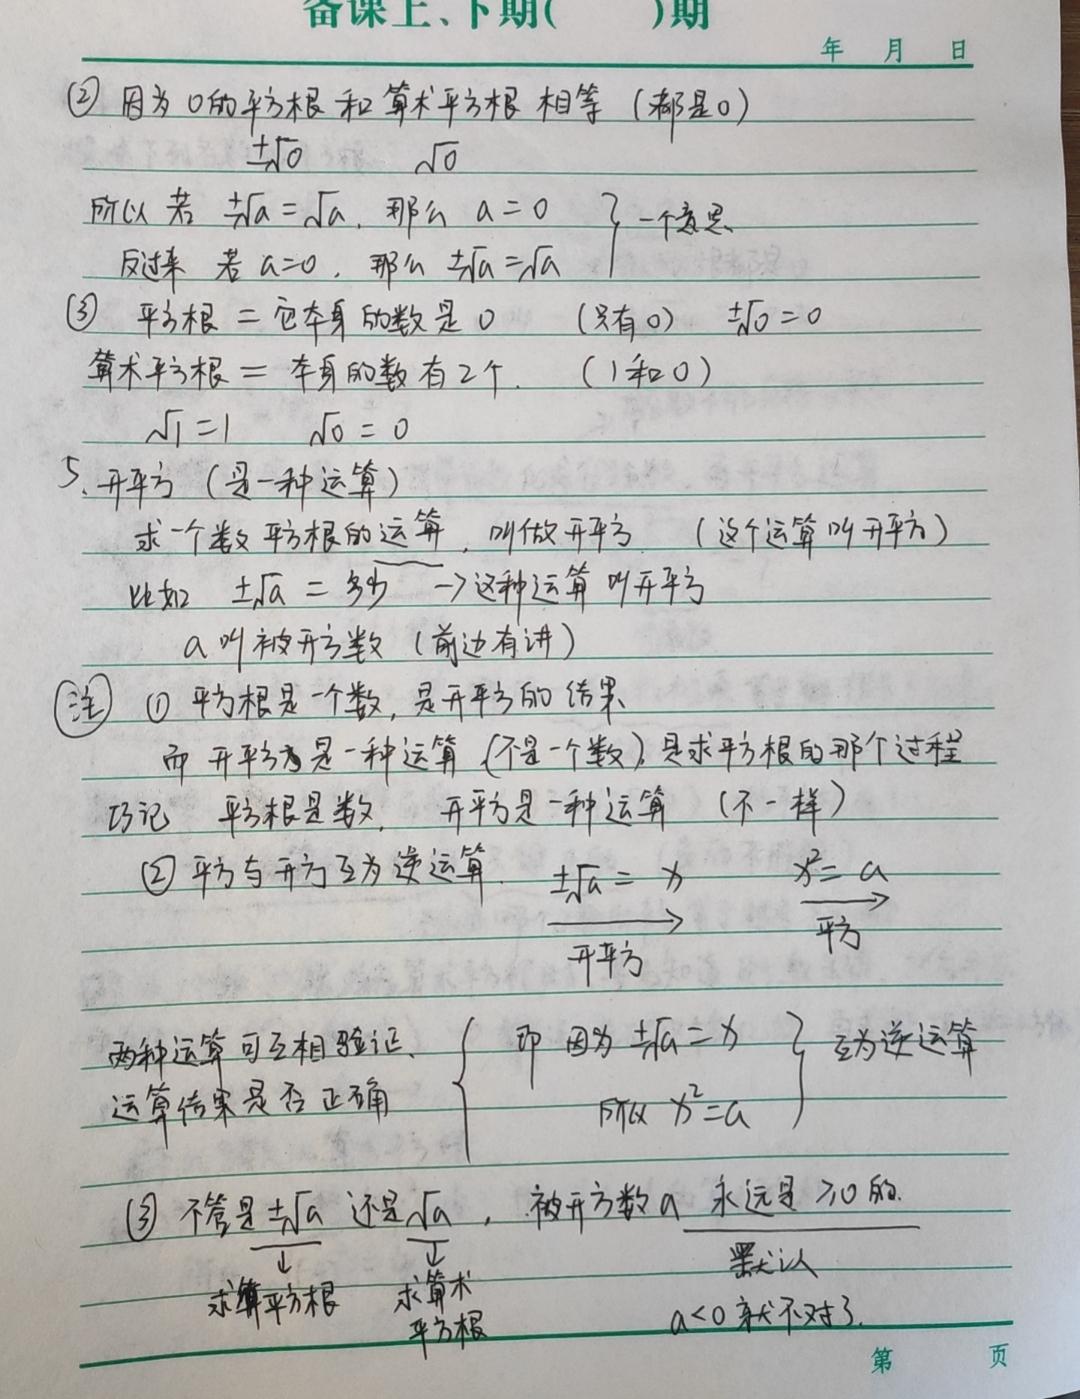 备课上、下期(  )期
年 月 日
② 因为0的平方根和算术平方根相等(都是0)
±√0 √0
所以若 ±√a=√a, 那么 a=0 } 一个意思
反过来 若 a=0, 那么 ±√a=√a
③ 平方根=它本身的数是0 (只有0) ±√0=0
算术平方根=本身的数有2个. (1和0)
√1=1 √0=0
5、开平方(是一种运算)
求一个数平方根的运算, 叫做开平方. (这个运算叫开平方)
比如 ±√a=多少 →这种运算叫开平方
a叫被开方数(前边有讲)
注 ① 平方根是一个数, 是开平方的结果、
而开平方是一种运算(不是一个数), 是求平方根的那个过程
巧记 平方根是数, 开平方是一种运算 (不一样)
② 平方与开方互为逆运算. ±√a=x x²=a
开平方 平方
两种运算可互相验证、 { 即 因为 ±√a=x } 互为逆运算
运算结果是否正确 所以 x²=a
③ 不管是±√a 还是√a, 被开方数a 永远是≥0的.
↓ ↓ 默认
求平方根 求算术
平方根 a<0就不对了.
第 页